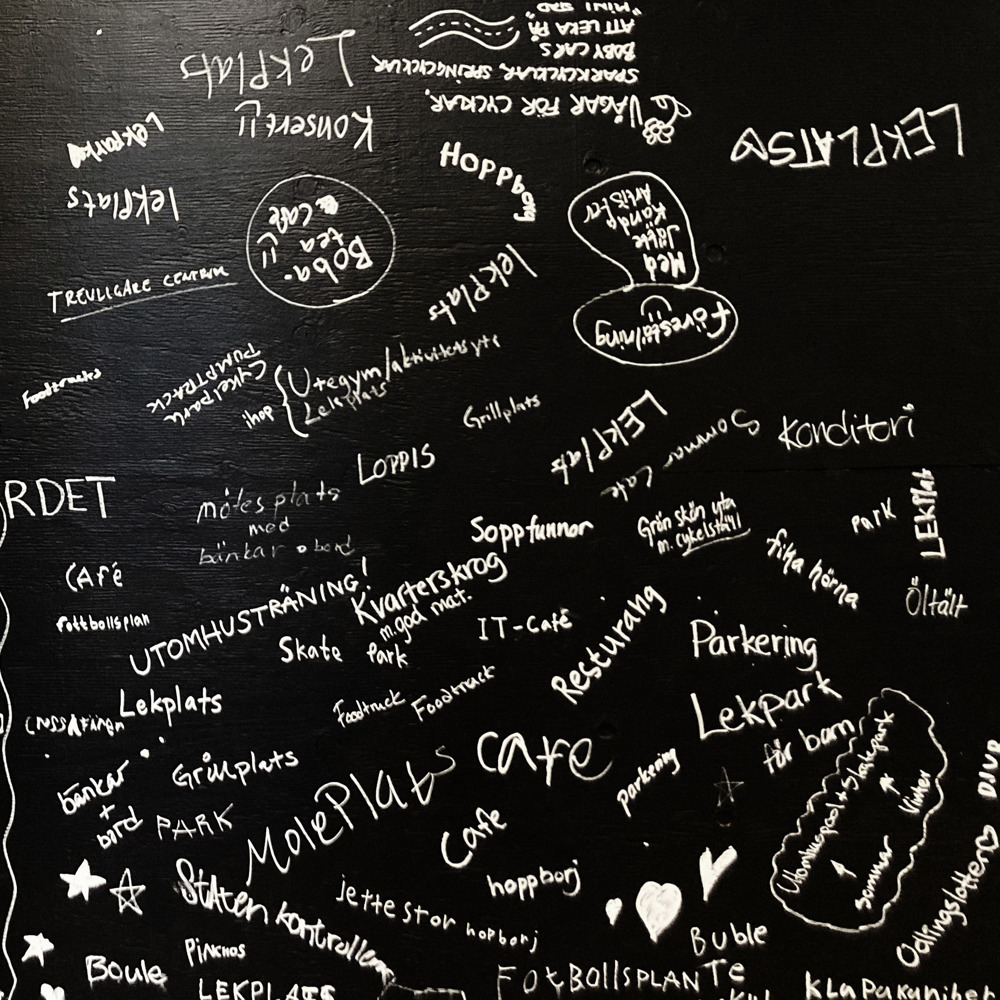 "MINI STAD
ATT LEKA PÅ
BABY CARS
SPARKCYKLAR, SPRINGCYKLAR
VÄGAR FÖR CYKLAR,
LEKPlats
Konsert
LEKPLATS
Lekpark
Hoppborg
lekplats
Boba-
tea
café
Föreställning
Med
Jätte
Kända
Artister
lekPlats
TREVLIGARE CENTRUM
Foodtrucks
Cykelpark
PUMPTRACK
ihop!
Utegym/aktivitetsyta
Lekplats
Grillplats
LEKPlats
Sommar Cafe
Konditori
LOPPIS
RDET
mötesplats
med
bänkar o bord
Soppfunnor
Grön skön yta
m. cykelställ
fika hörna
PARK
LEKPlat
Öltält
CAFé
fottbollsplan
UTOMHUSTRÄNING!
Kvarterskrog
m. god mat.
IT-Café
Skate Park
Resturahg
Parkering
Lekplats
Foodtruck
Foodtruck
Lekpart
för barn
Grillplats
bänkar
+
bord
PARK
MolePlats
cafe
Cafe
parkering
Utomhuspool + Skatepark
sommar
Vinter
Staten kontrollerar
jettestor hopborj
hoppborj
Buble
Odlingslotter
DJUR
Boule
Pinchos
LEKPLATS
FOtBollSPLANTe